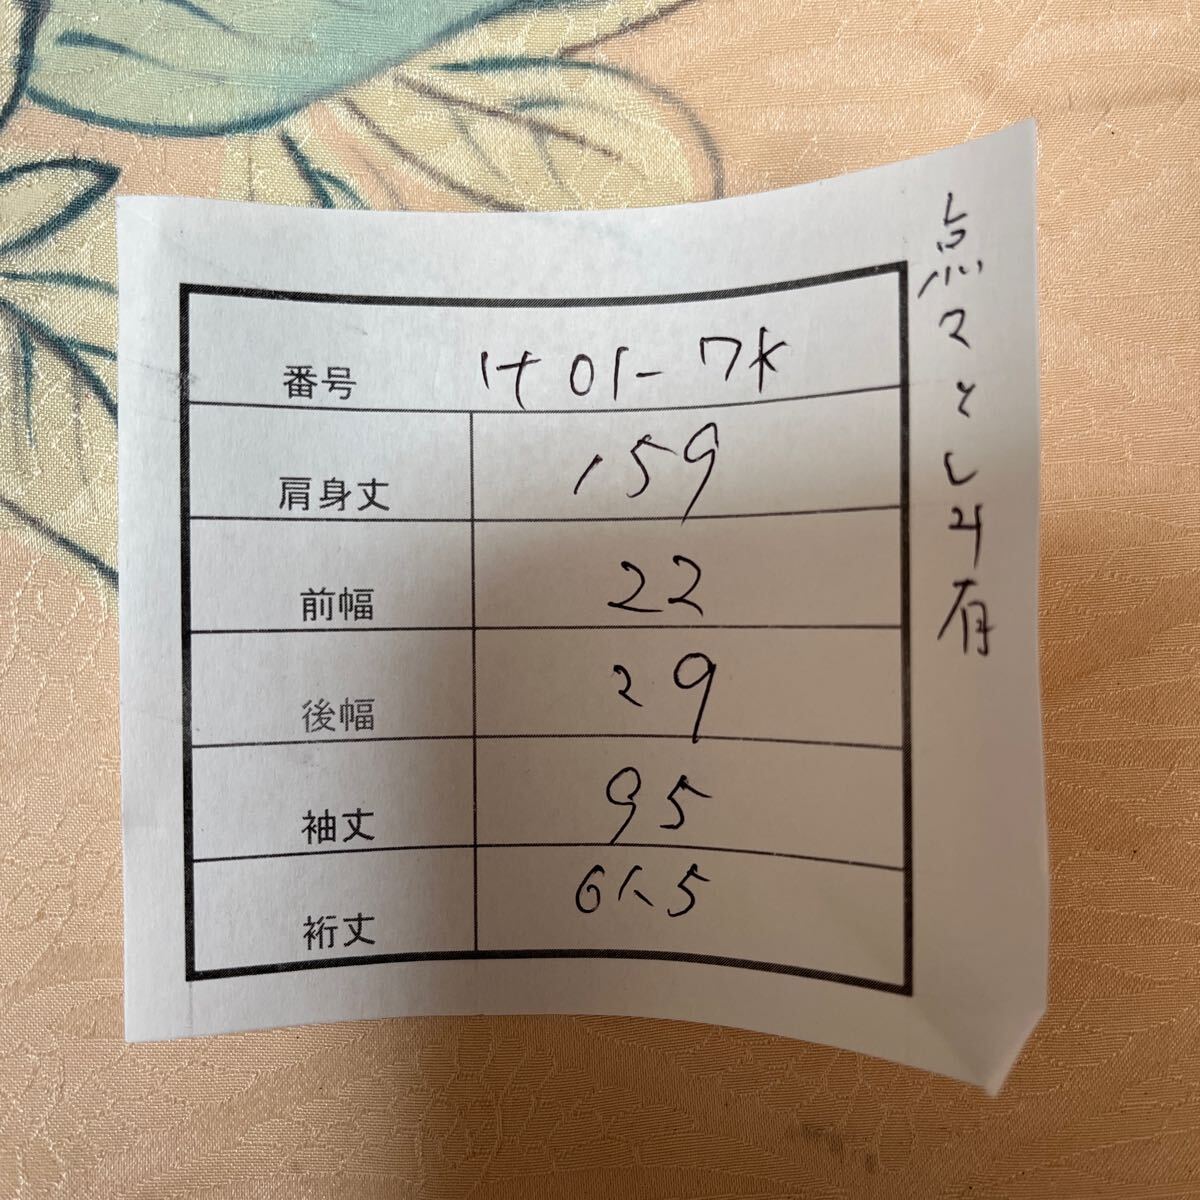 番号 け01-7k
肩身丈 159
前幅 22
後幅 29
袖丈 95
裄丈 61.5
点々としみ有